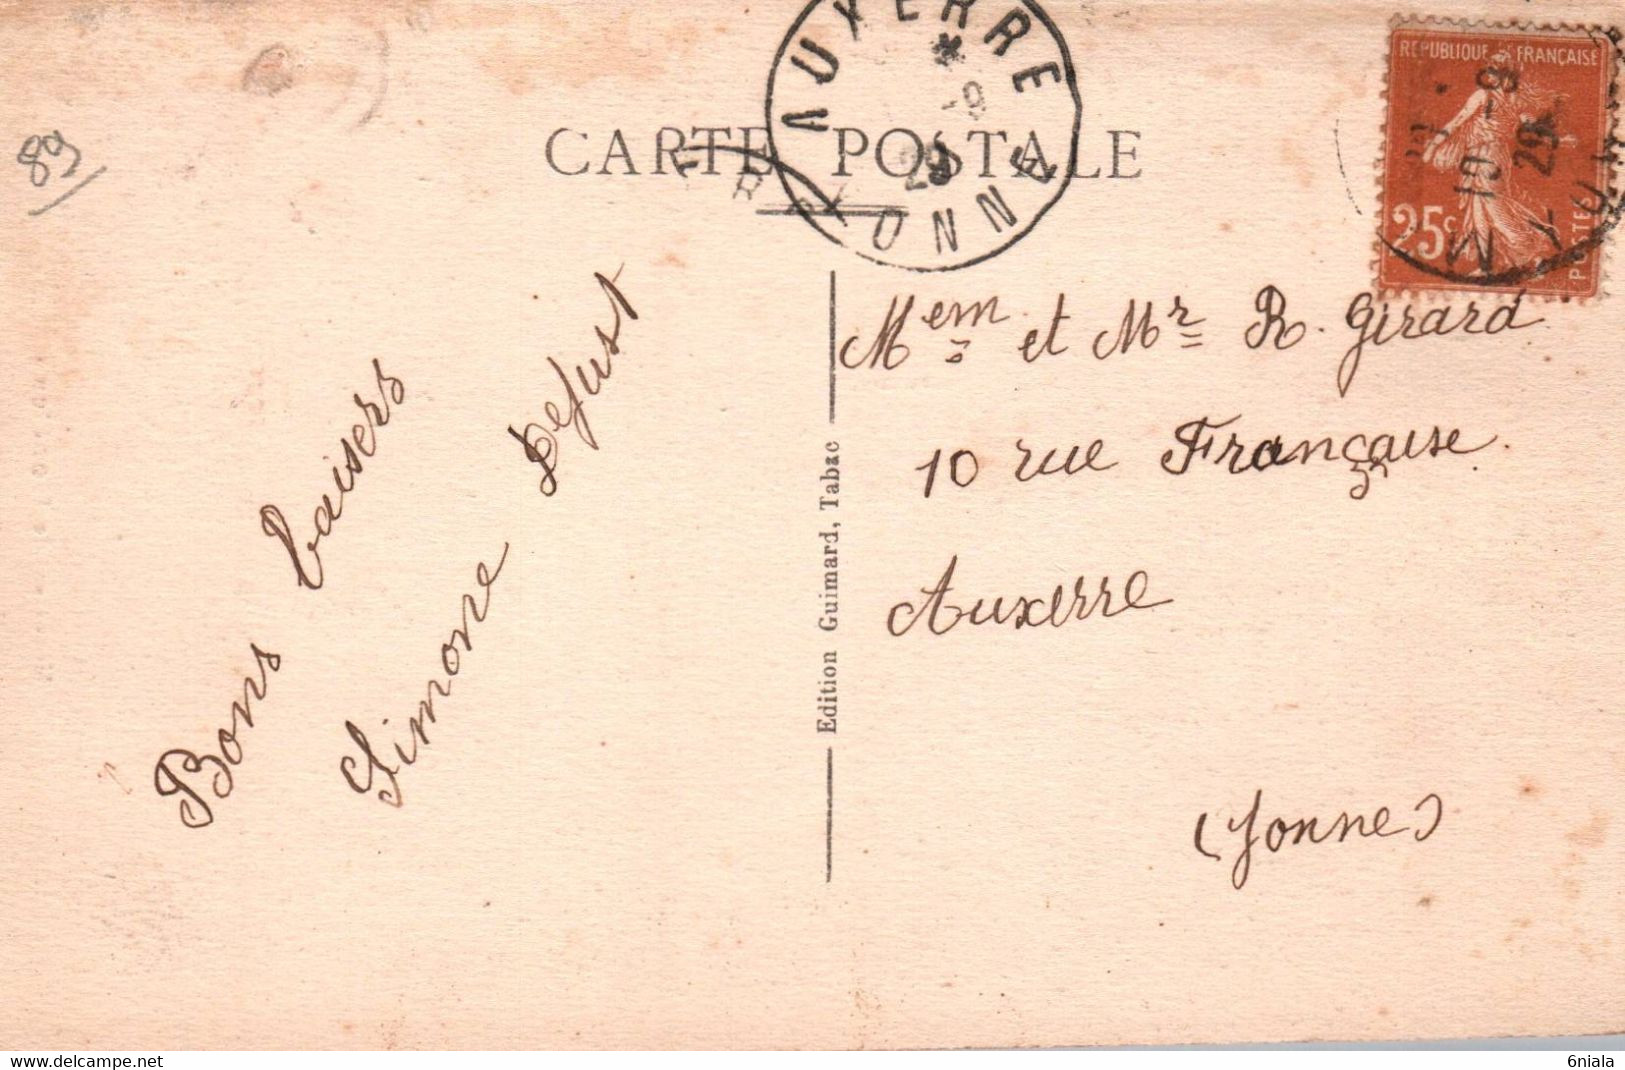 89
CARTE POSTALE
AUXERRE
* -9
29
YONNE
REPUBLIQUE FRANÇAISE
10 -9
29
25c
POSTES
Mem et Mr R. Girard
10 rue Française
Auxerre
(Yonne)
Bons baisers
Simone Defust
Edition Guimard, Tabac
delcampe.net
6niala